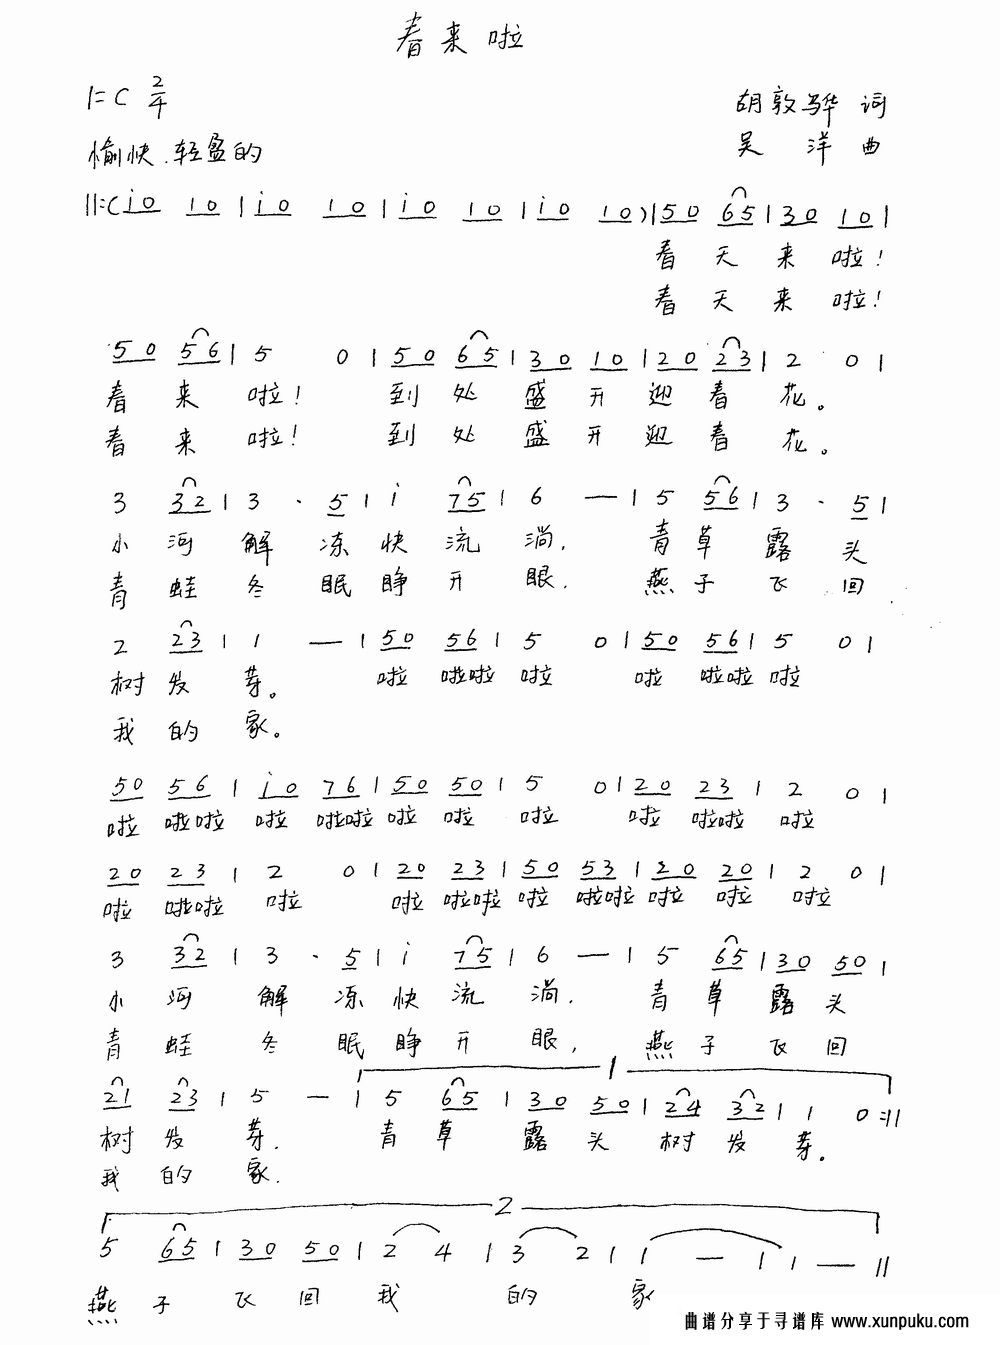 春来啦
1=C 2/4
胡敦骅 词
愉快.轻盈的
吴洋 曲
||:(i0 10|i0 10|i0 10|i0 10)|50 65|30 10|
春天来啦!
春天来啦!
50 56|5 0|50 65|30 10|20 23|2 0|
春来啦! 到处盛开迎春花。
春来啦! 到处盛开迎春花。
3 32|3 · 5|i 75|6 —|5 56|3 · 5|
小河解冻快流淌, 青草露头
青蛙冬眠睁开眼, 燕子飞回
2 23|1 —|50 56|5 0|50 56|5 0|
树发芽。 啦 啦啦 啦 啦 啦啦 啦
我的家。
50 56|i0 76|50 50|5 0|20 23|2 0|
啦 啦啦 啦 啦啦 啦 啦 啦 啦 啦啦 啦
20 23|2 0|20 23|50 53|20 20|2 0|
啦 啦啦 啦 啦 啦啦 啦 啦啦 啦 啦 啦
3 32|3 · 5|i 75|6 —|5 65|30 50|
小河解冻快流淌, 青草露头
青蛙冬眠睁开眼, 燕子飞回
1
21 23|5 —|5 65|30 50|24 32|1 0:||
树发芽. 青草露头树发芽。
我的家.
2
5 65|30 50|2 4|3 2|1 —|1 —||
燕子飞回我的家
曲谱分享于寻谱库 www.xunpuku.com